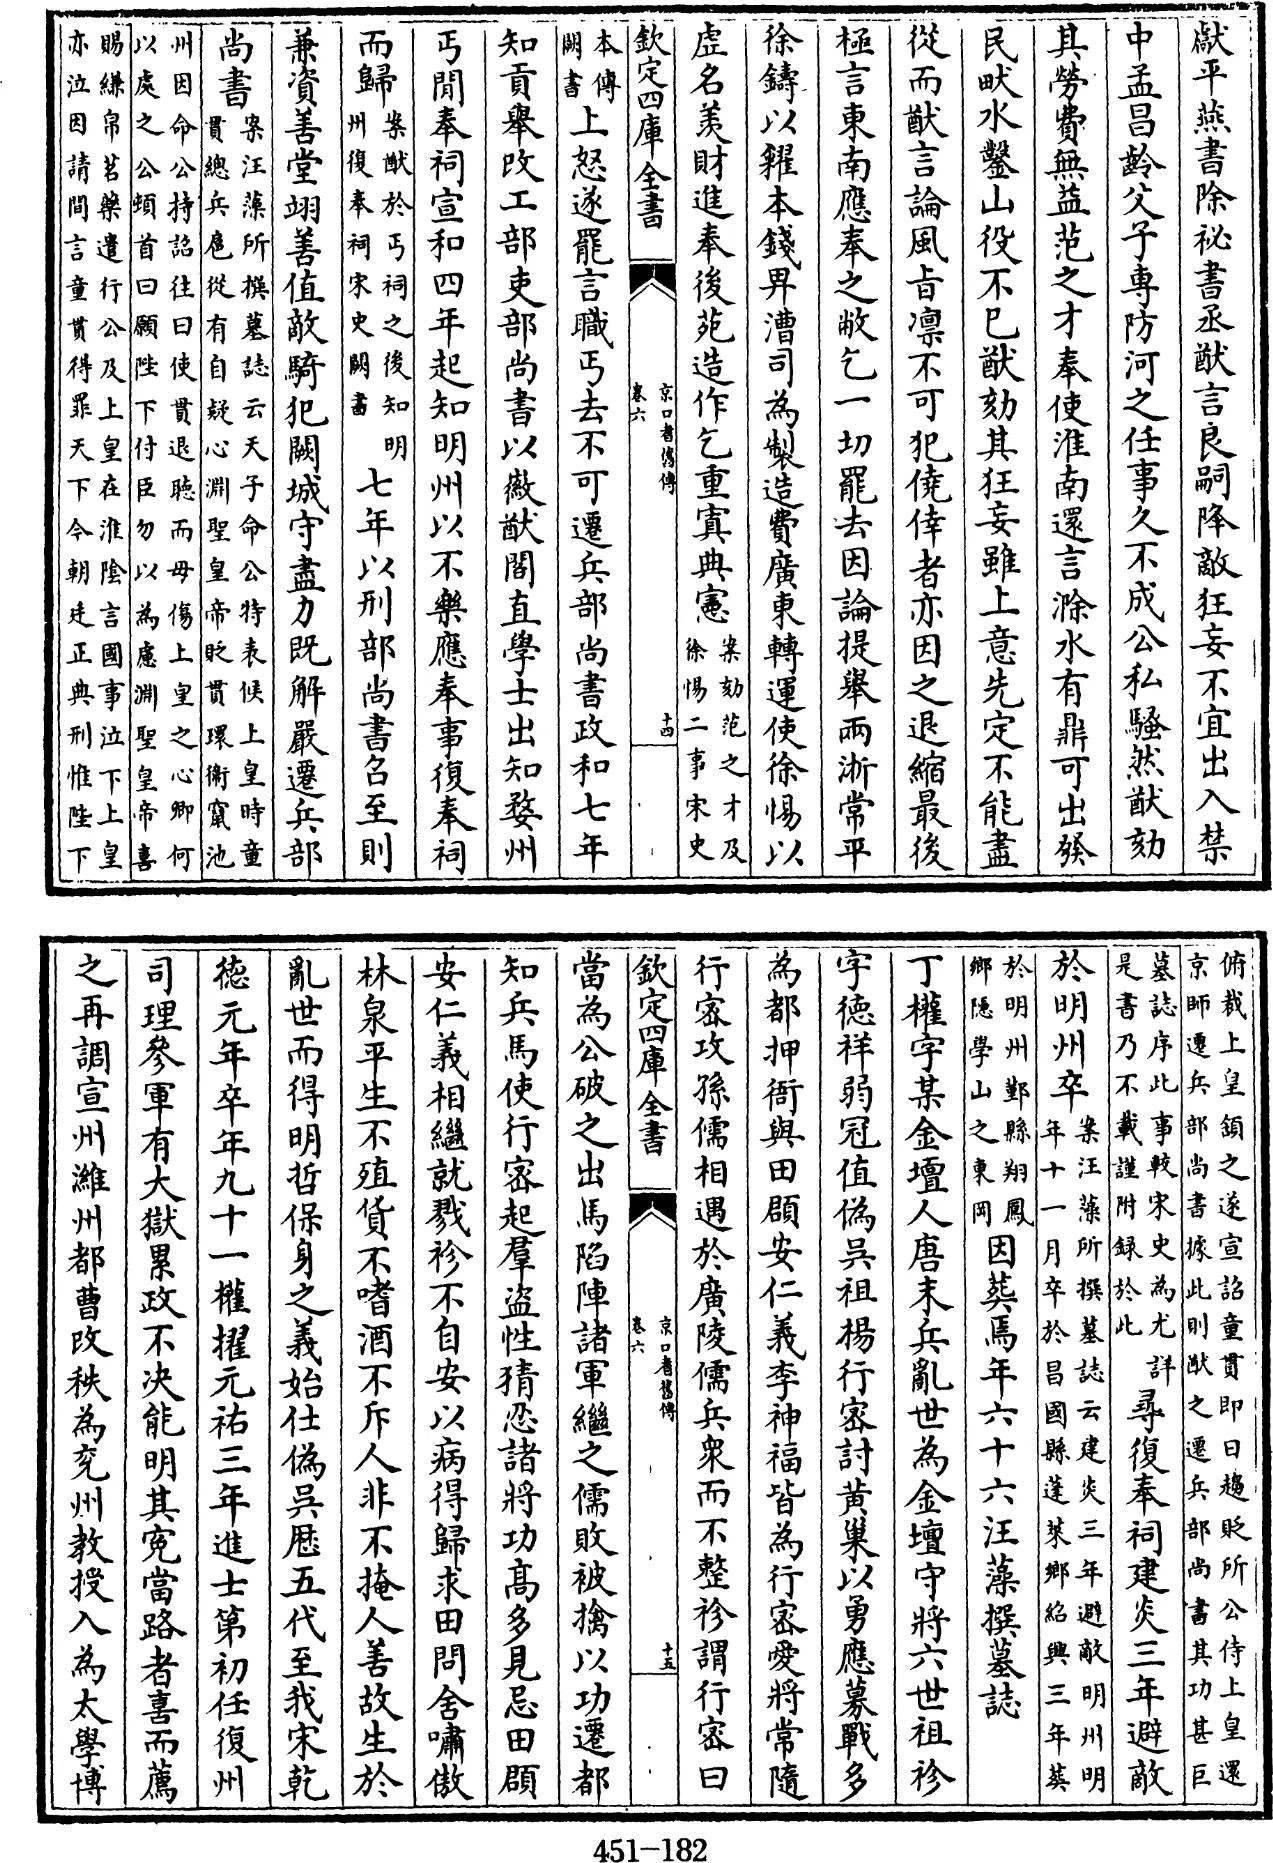 獻平燕書除祕書丞猷言良嗣降敵狂妄不宜出入禁
中孟昌齡父子專防河之任事久不成公私騷然猷劾
其勞費無益范之才奉使淮南還言滁水有鼎可出發
民畎水鑿山役不已猷劾其狂妄雖上意先定不能盡
從而猷言論風旨凜不可犯僥倖者亦因之退縮最後
極言東南應奉之敝乞一切罷去因論提舉兩浙常平
徐鑄以糴本錢畀漕司為製造費廣東轉運使徐惕以
虛名羨財進奉後苑造作乞重寘典憲案劾范之才及
徐惕二事宋史
欽定四庫全書
京口耆舊傳
卷六
十四
本傳
闕書上怒遂罷言職丐去不可遷兵部尚書政和七年
知貢舉改工部吏部尚書以徽猷閣直學士出知婺州
丐閒奉祠宣和四年起知明州以不樂應奉事復奉祠
而歸案猷於丐祠之後知明
州復奉祠宋史闕書七年以刑部尚書召至則
兼資善堂翊善值敵騎犯闕城守盡力既解嚴遷兵部
尚書案汪藻所撰墓誌云天子命公特表候上皇時童
貫總兵扈從有自疑心淵聖皇帝貶貫環衛竄池
州因命公持詔往曰使貫退聽而毋傷上皇之心卿何
以處之公頓首曰願陛下付臣勿以為慮淵聖皇帝喜
賜縑帛茗藥遣行公及上皇在淮陰言國事泣下上皇
亦泣因請間言童貫得罪天下今朝廷正典刑惟陛下
俯裁上皇頷之遂宣詔童貫即日趨貶所公侍上皇還
京師遷兵部尚書據此則猷之遷兵部尚書其功甚巨
墓誌序此事較宋史為尤詳
是書乃不載謹附錄於此尋復奉祠建炎三年避敵
於明州卒案汪藻所撰墓誌云建炎三年避敵明州明
年十一月卒於昌國縣蓬萊鄉紹興三年葬
於明州鄞縣翔鳳
鄉隱學山之東岡因葬焉年六十六汪藻撰墓誌
丁權字某金壇人唐末兵亂世為金壇守將六世祖袗
字德祥弱冠值偽吳祖楊行密討黃巢以勇應募戰多
為都押衙與田頵安仁義李神福皆為行密愛將常隨
行密攻孫儒相遇於廣陵儒兵衆而不整袗謂行密曰
欽定四庫全書
京口耆舊傳
卷六
十五
當為公破之出馬陷陣諸軍繼之儒敗被擒以功遷都
知兵馬使行密起羣盜性猜忍諸將功高多見忌田頵
安仁義相繼就戮袗不自安以病得歸求田問舍嘯傲
林泉平生不殖貨不嗜酒不斥人非不掩人善故生於
亂世而得明哲保身之義始仕偽吳歷五代至我宋乾
德元年卒年九十一權擢元祐三年進士第初任復州
司理參軍有大獄累政不決能明其寃當路者喜而薦
之再調宣州濰州都曹改秩為兖州教授入為太學博
451-182